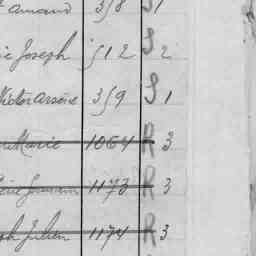 Armand 318 S 1
Joseph 512 S 2
Victor Arsène 319 S 1
Marie 1064 R 3
Germain 1173 R 3
Julien 1174 R 3